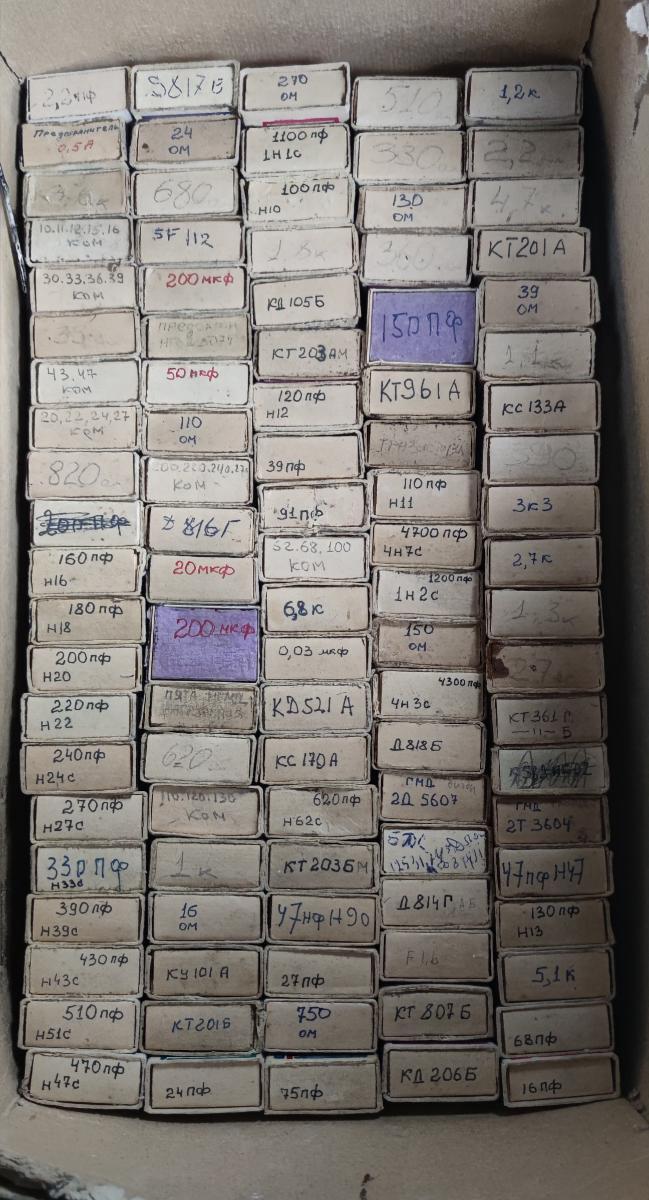 2,2 пф
Предохранитель
0,5А
10.11.12.15.16
КОМ
30.33.36.39
КОМ
43.47
КОМ
20,22,24,27
КОМ
820
160пф
Н16
180пф
Н18
200пф
Н20
220пф
Н22
240пф
Н24с
270пф
Н27с
330ПФ
Н33с
390пф
Н39с
430пф
Н43с
510пф
Н51с
470пф
Н47с
24
ОМ
680
SF 112
200мкф
50мкф
110
ОМ
КОМ
Д816Г
20мкф
200 мкф
620
110.120.130
КОМ
1к
16
ОМ
КУ101А
КТ201Б
24пф
270
ОМ
1100пф
1Н1с
100пф
Н10
1.8к
КД105Б
КТ203АМ
120пф
Н12
39пф
91пф
52.68.100
КОМ
6,8к
0,03 мкф
КД521А
КС170А
620пф
Н62с
КТ203БМ
47нф Н90
27пф
750
ОМ
75пф
510
330
130
ОМ
360
150ПФ
КТ961А
110пф
Н11
4700пф
4Н7с
1200пф
1Н2с
150
ОМ
4300пф
4Н3с
Д818Б
ГМД
2Д 5607
Д814Г
КТ807Б
КД206Б
1,2к
2,2
4,7к
КТ201А
39
ОМ
1,1к
КС133А
3к3
2,7к
1,3к
КТ361Г
—11—Б
ГМД
2Т3604
47пф Н47
130пф
Н13
5,1к
68пф
16пф